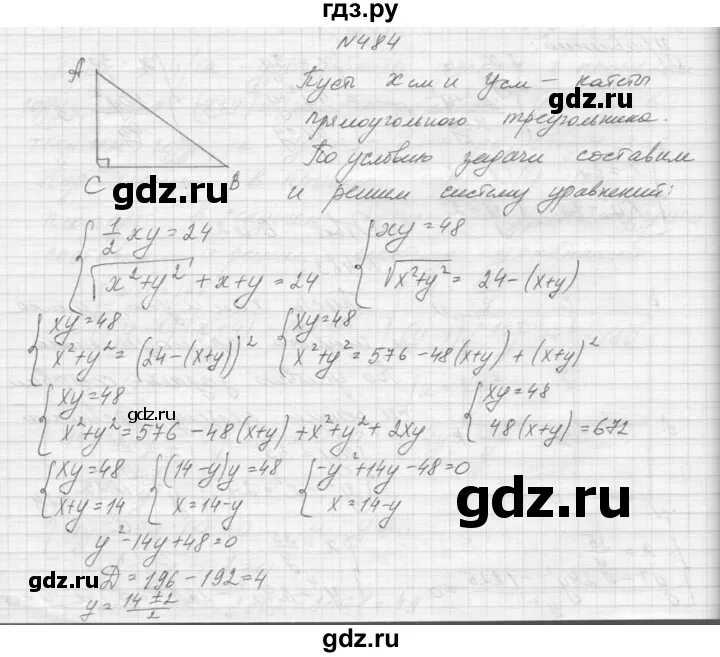 гдз.ру
N484
A
C
B
Пусть х см и у см — катеты
прямоугольного треугольника.
По условию задачи составим
и решим систему уравнений:
gdz.ru
gdz.ru
{ 1/2 xy = 24 { xy = 48
{ √x²+y² + x + y = 24 { √x²+y² = 24 - (x+y)
{ xy = 48 { xy = 48
{ x² + y² = (24 - (x+y))² { x² + y² = 576 - 48(x+y) + (x+y)²
{ xy = 48 { xy = 48
gdz.ru
{ x² + y² = 576 - 48(x+y) + x² + y² + 2xy { 48(x+y) = 672
{ xy = 48 { (14-y)y = 48 { -y² + 14y - 48 = 0
{ x+y = 14 { x = 14-y { x = 14-y
gdz.ru
y² - 14y + 48 = 0
gdz.ru
Д = 196 - 192 = 4
y = 14 ± 2 / 2
gdz.ru